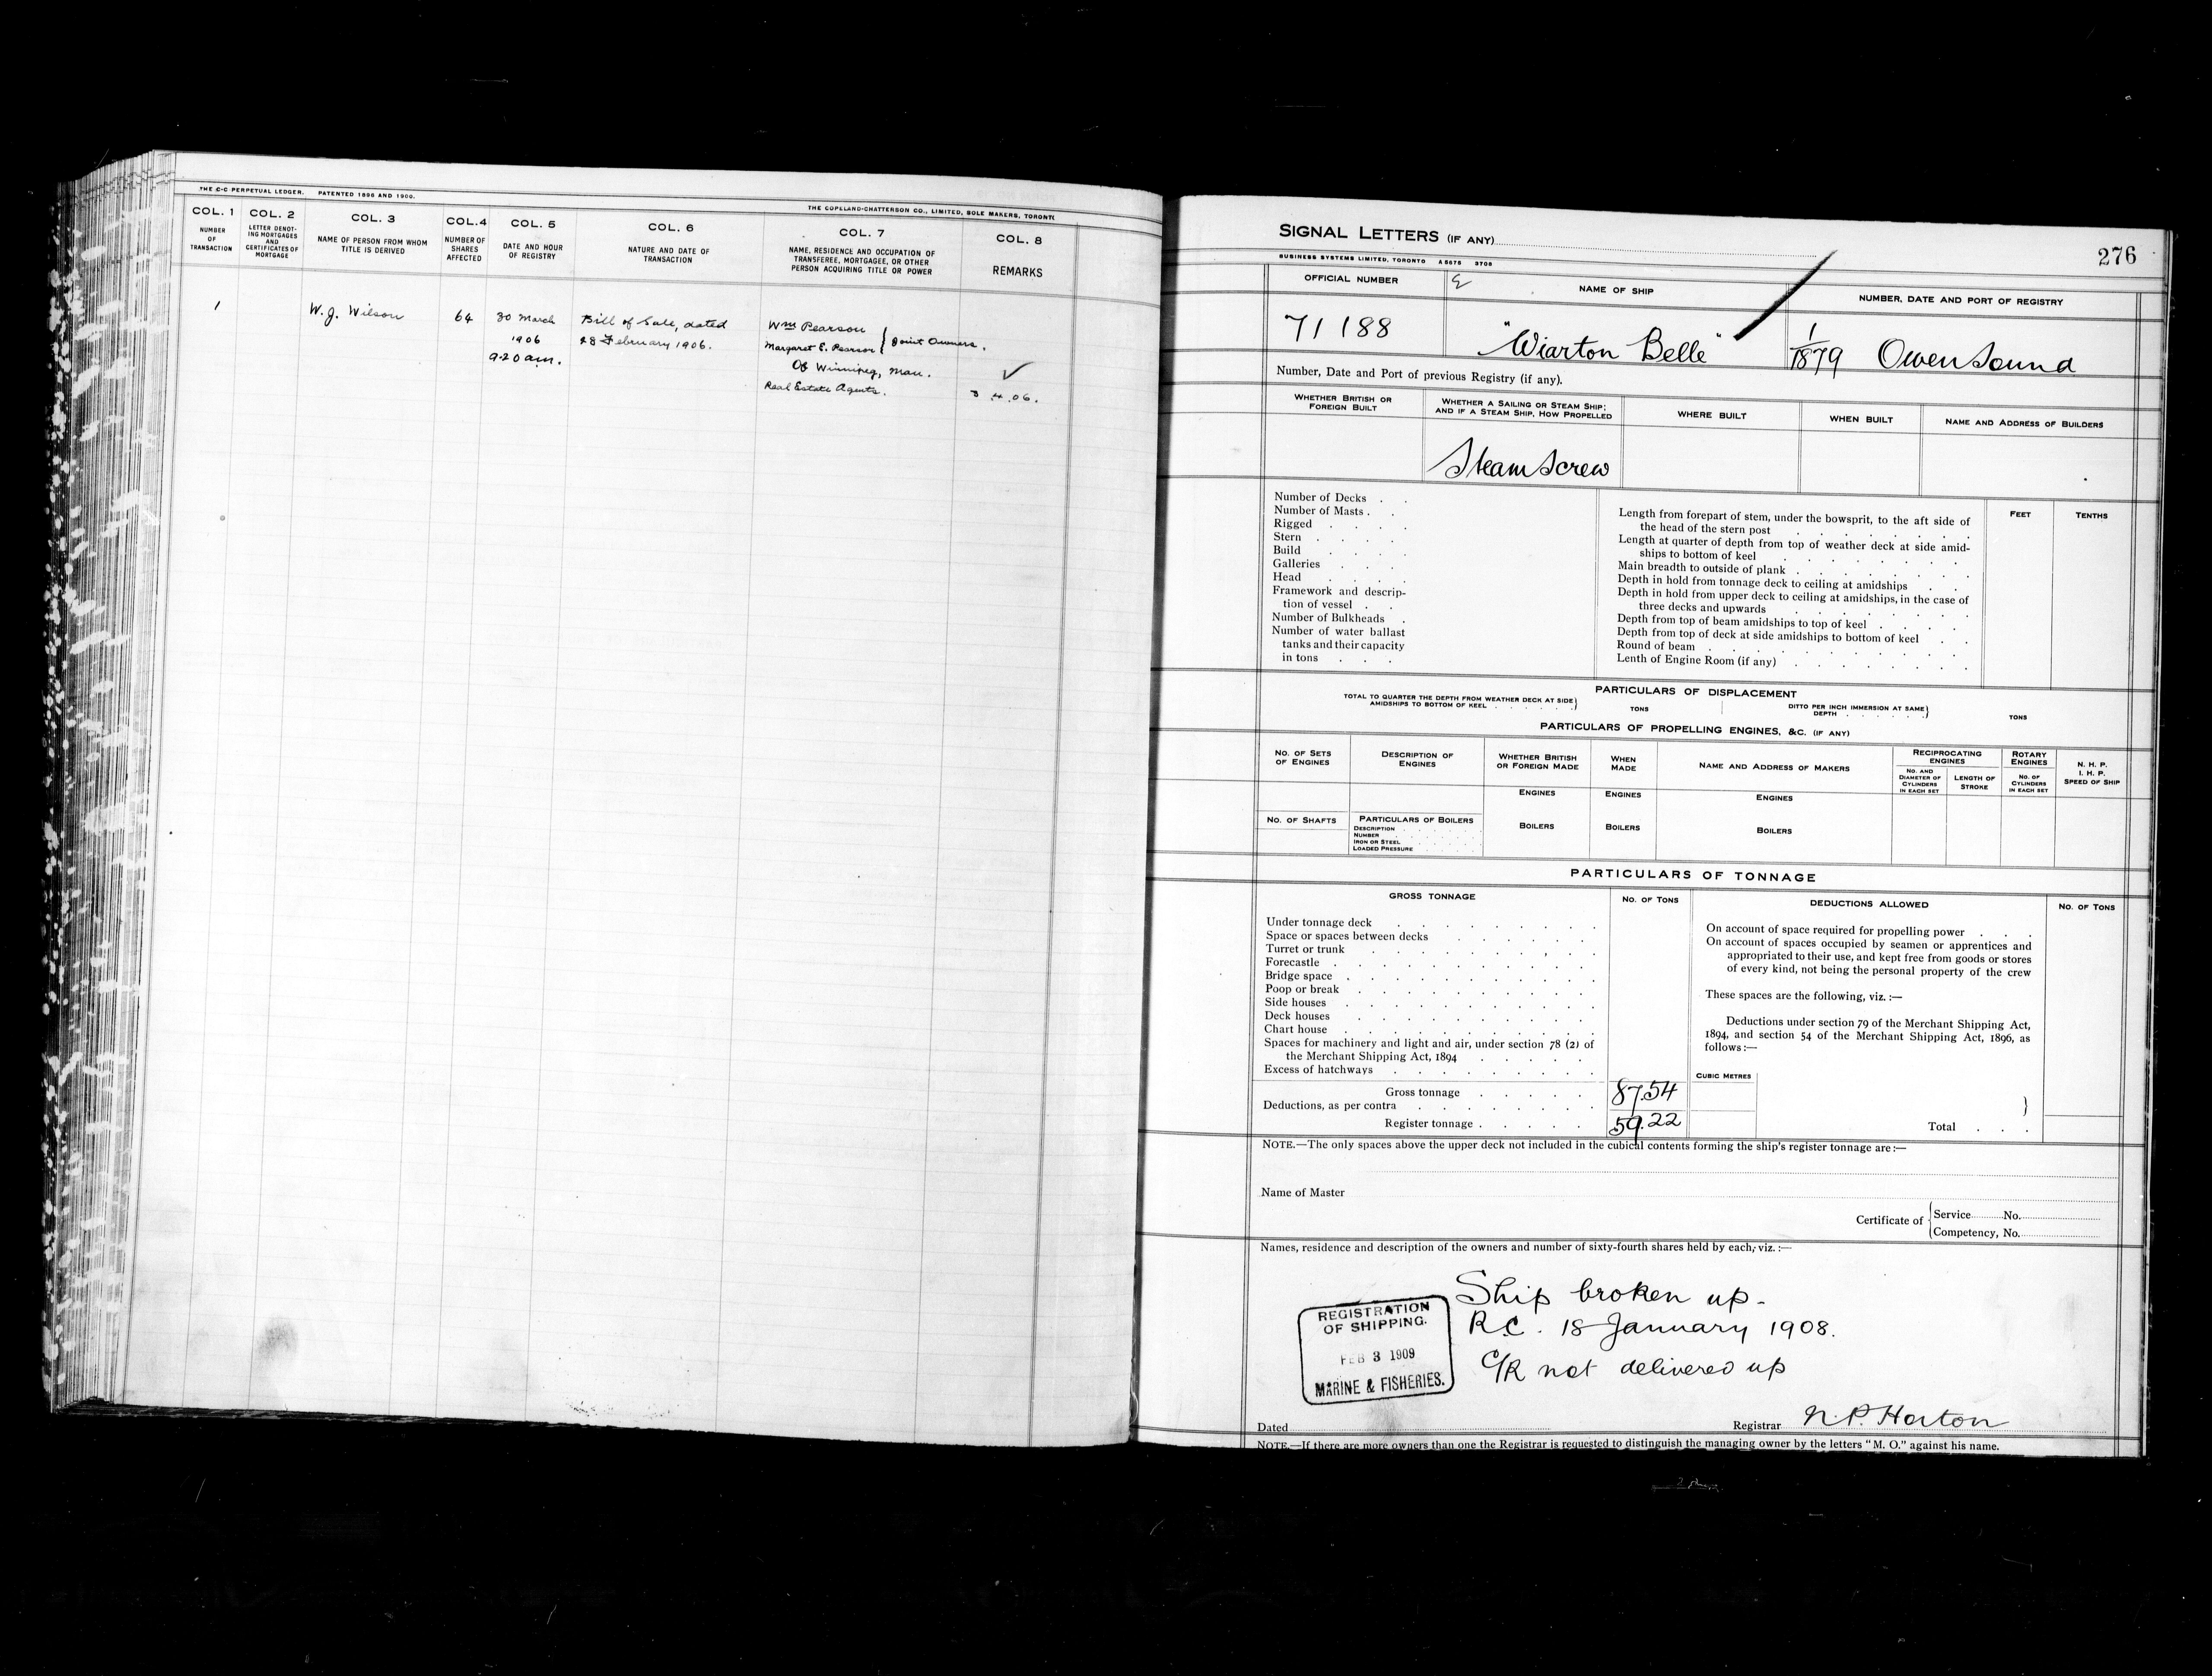 THE C-C PERPETUAL LEDGER. PATENTED 1896 AND 1900.
THE COPELAND-CHATTERSON CO., LIMITED, SOLE MAKERS, TORONTO
COL. 1 COL. 2 COL. 3 COL. 4 COL. 5 COL. 6 COL. 7 COL. 8
NUMBER OF TRANSACTION
LETTER DENOTING MORTGAGES AND CERTIFICATES OF MORTGAGE
NAME OF PERSON FROM WHOM TITLE IS DERIVED
NUMBER OF SHARES AFFECTED
DATE AND HOUR OF REGISTRY
NATURE AND DATE OF TRANSACTION
NAME, RESIDENCE AND OCCUPATION OF TRANSFEREE, MORTGAGEE, OR OTHER PERSON ACQUIRING TITLE OR POWER
REMARKS
1
W. J. Wilson
64
30 March
1906
9.20 am.
Bill of Sale, dated
28 February 1906.
Wm Pearson
Margaret E. Pearson } Joint Owners.
Of Winnipeg, Man.
Real Estate Agents.
3 4 .06.
SIGNAL LETTERS (IF ANY)
276
BUSINESS SYSTEMS LIMITED, TORONTO A5675 3708
OFFICIAL NUMBER
NAME OF SHIP
NUMBER, DATE AND PORT OF REGISTRY
71188
"Wiarton Belle"
1/1879 Owen Sound
Number, Date and Port of previous Registry (if any).
WHETHER BRITISH OR FOREIGN BUILT
WHETHER A SAILING OR STEAM SHIP; AND IF A STEAM SHIP, HOW PROPELLED
WHERE BUILT
WHEN BUILT
NAME AND ADDRESS OF BUILDERS
Steam Screw
Number of Decks
Number of Masts
Rigged
Stern
Build
Galleries
Head
Framework and descrip-
tion of vessel
Number of Bulkheads
Number of water ballast
tanks and their capacity
in tons
FEET TENTHS
Length from forepart of stem, under the bowsprit, to the aft side of
the head of the stern post
Length at quarter of depth from top of weather deck at side amid-
ships to bottom of keel
Main breadth to outside of plank
Depth in hold from tonnage deck to ceiling at amidships
Depth in hold from upper deck to ceiling at amidships, in the case of
three decks and upwards
Depth from top of beam amidships to top of keel
Depth from top of deck at side amidships to bottom of keel
Round of beam
Lenth of Engine Room (if any)
PARTICULARS OF DISPLACEMENT
TOTAL TO QUARTER THE DEPTH FROM WEATHER DECK AT SIDE
AMIDSHIPS TO BOTTOM OF KEEL
TONS
DITTO PER INCH IMMERSION AT SAME
DEPTH
TONS
PARTICULARS OF PROPELLING ENGINES, &C. (IF ANY)
NO. OF SETS OF ENGINES
DESCRIPTION OF ENGINES
WHETHER BRITISH OR FOREIGN MADE
WHEN MADE
NAME AND ADDRESS OF MAKERS
RECIPROCATING ENGINES
NO. AND DIAMETER OF CYLINDERS IN EACH SET
LENGTH OF STROKE
ROTARY ENGINES
NO. OF CYLINDERS IN EACH SET
N. H. P.
I. H. P.
SPEED OF SHIP
ENGINES ENGINES ENGINES
NO. OF SHAFTS
PARTICULARS OF BOILERS
DESCRIPTION
NUMBER
IRON OR STEEL
LOADED PRESSURE
BOILERS BOILERS BOILERS
PARTICULARS OF TONNAGE
GROSS TONNAGE
NO. OF TONS
DEDUCTIONS ALLOWED
NO. OF TONS
Under tonnage deck
Space or spaces between decks
Turret or trunk
Forecastle
Bridge space
Poop or break
Side houses
Deck houses
Chart house
Spaces for machinery and light and air, under section 78 (2) of
the Merchant Shipping Act, 1894
Excess of hatchways
Gross tonnage 87.54
Deductions, as per contra
Register tonnage 59.22
On account of space required for propelling power
On account of spaces occupied by seamen or apprentices and
appropriated to their use, and kept free from goods or stores
of every kind, not being the personal property of the crew
These spaces are the following, viz.:—
Deductions under section 79 of the Merchant Shipping Act,
1894, and section 54 of the Merchant Shipping Act, 1896, as
follows:—
CUBIC METRES
Total
NOTE.—The only spaces above the upper deck not included in the cubical contents forming the ship's register tonnage are:—
Name of Master
Certificate of { Service No.
Competency, No.
Names, residence and description of the owners and number of sixty-fourth shares held by each, viz.:—
Ship broken up -
R.C. 18 January 1908.
C/R not delivered up
REGISTRATION
OF SHIPPING.
FEB 3 1909
MARINE & FISHERIES.
Dated
Registrar N. P. Horton
NOTE.—If there are more owners than one the Registrar is requested to distinguish the managing owner by the letters "M. O." against his name.